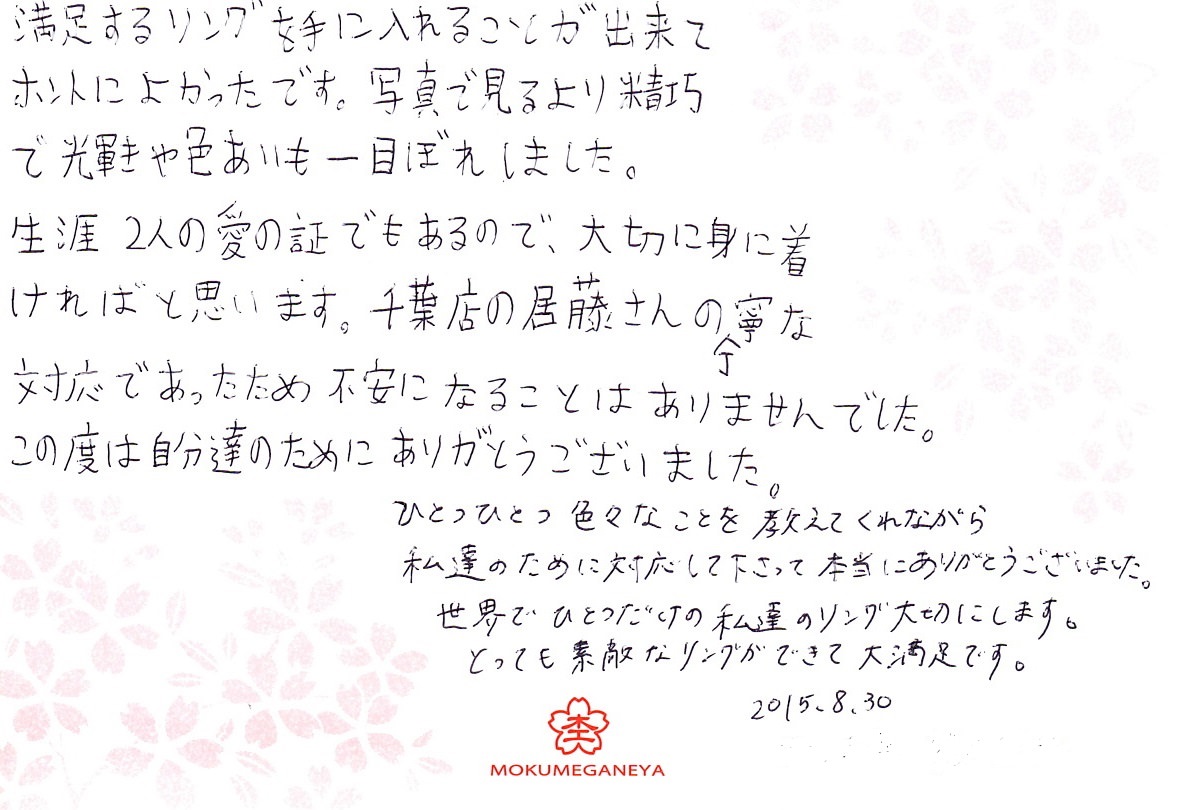 満足するリングを手に入れることが出来て
ホントによかったです。写真で見るより精巧
で光輝きや色あいも一目ぼれしました。
生涯 2人の愛の証でもあるので、大切に身に着
ければと思います。千葉店の居藤さんの丁寧な
対応であったため不安になることはありませんでした。
この度は自分達のためにありがとうございました。
ひとつひとつ 色々なことを 教えてくれながら
私達のために対応して下さって 本当にありがとうございました。
世界で ひとつだけの 私達のリング大切にします。
とっても 素敵なリングができて 大満足です。
2015.8.30
MOKUMEGANEYA